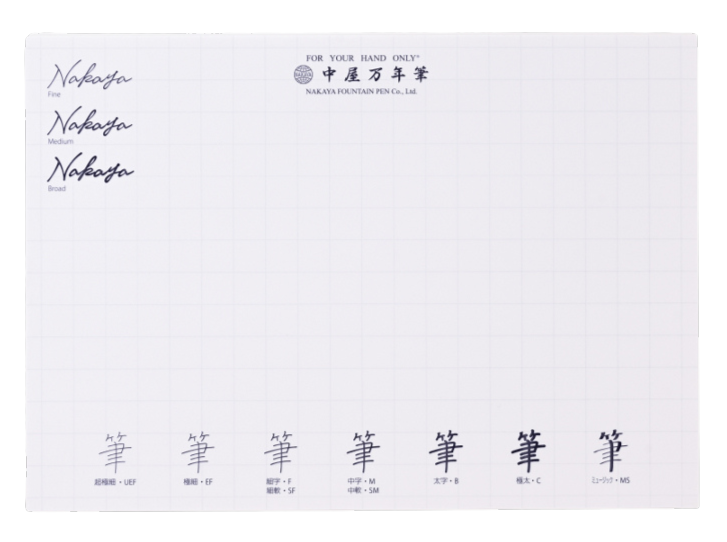 FOR YOUR HAND ONLY®
中屋万年筆
NAKAYA FOUNTAIN PEN Co., Ltd.
Nakaya
Fine
Nakaya
Medium
Nakaya
Broad
筆 筆 筆 筆 筆 筆 筆
超極細・UEF 極細・EF 細字・F 中字・M 太字・B 極太・C ミュージック・MS
細軟・SF 中軟・SM